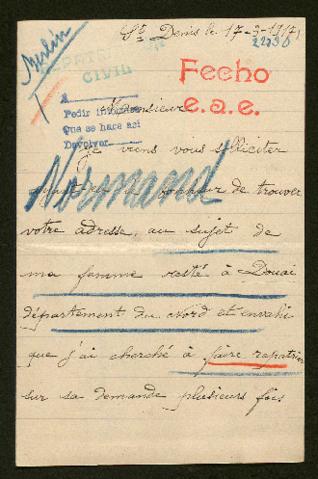 Berlin
St Denis le 17-3-1917
22930
REPATRI
CIVIL
Fecho
e.a.e.
A
Pedir informes
Que se hace asi
Devolver
Monsieur
Je viens vous solliciter
Normand
ayant eu le bonheur de trouver
votre adresse, au sujet de
ma femme resté à Douai
département du Nord et envahi
que j'ai cherché à faire rapatrier
sur sa demande plusieurs fois